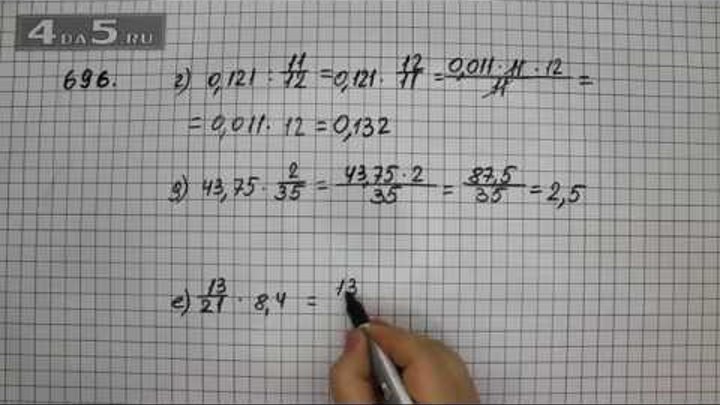 4DA5.RU
696. г) 0,121 : 11/12 = 0,121 · 12/11 = 0,011 · 11 · 12/11 =
= 0,011 · 12 = 0,132
д) 43,75 · 2/35 = 43,75 · 2/35 = 87,5/35 = 2,5
е) 13/21 · 8,4 = 13